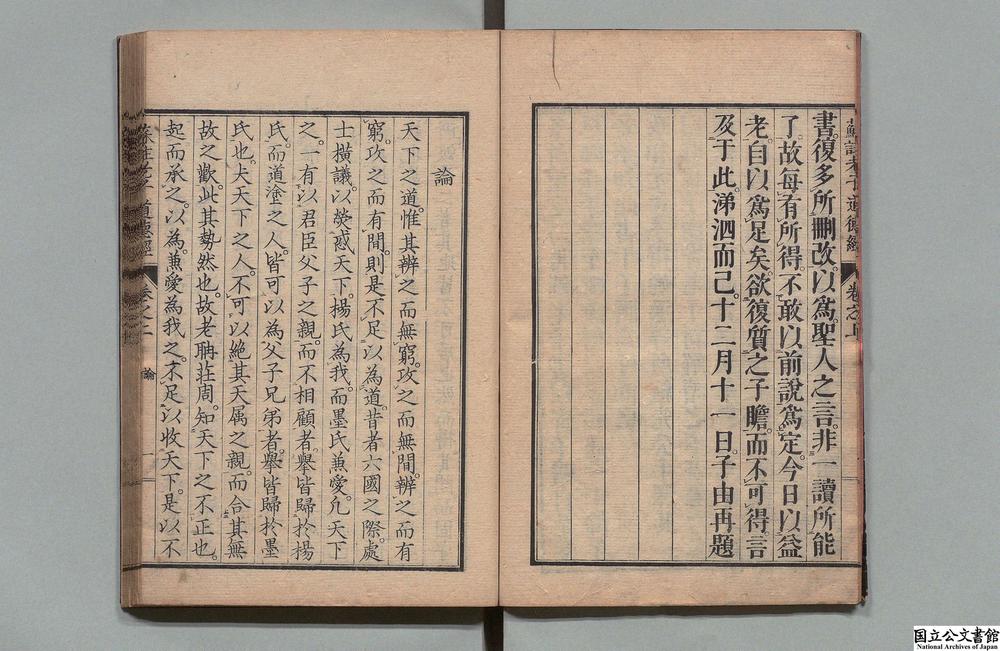 書。復多所刪改。以爲聖人之言。非一讀所能
了。故每有所得。不敢以前說爲定。今日以益
老。自以爲足矣。欲復質之子瞻。而不可得。言
及于此。涕泗而已。十二月十一日。子由再題
論
天下之道。惟其辨之而無窮。攻之而無間。辨之而有
窮。攻之而有間。則是不足以為道。昔者六國之際。處
士橫議。以熒惑天下。揚氏為我。而墨氏兼愛。凡天下
之一有以君臣父子之親。而不相顧者。舉皆歸於揚
氏。而道塗之人。皆可以為父子兄弟者。舉皆歸於墨
氏也。夫天下之人。不可以絶其天属之親。而合其無
故之歡。此其勢然也。故老聃莊周。知天下之不正也。
起而承之。以為兼愛為我之。不足以收天下。是以不
道德經
卷之二
論
一
國立公文書館
National Archives of Japan